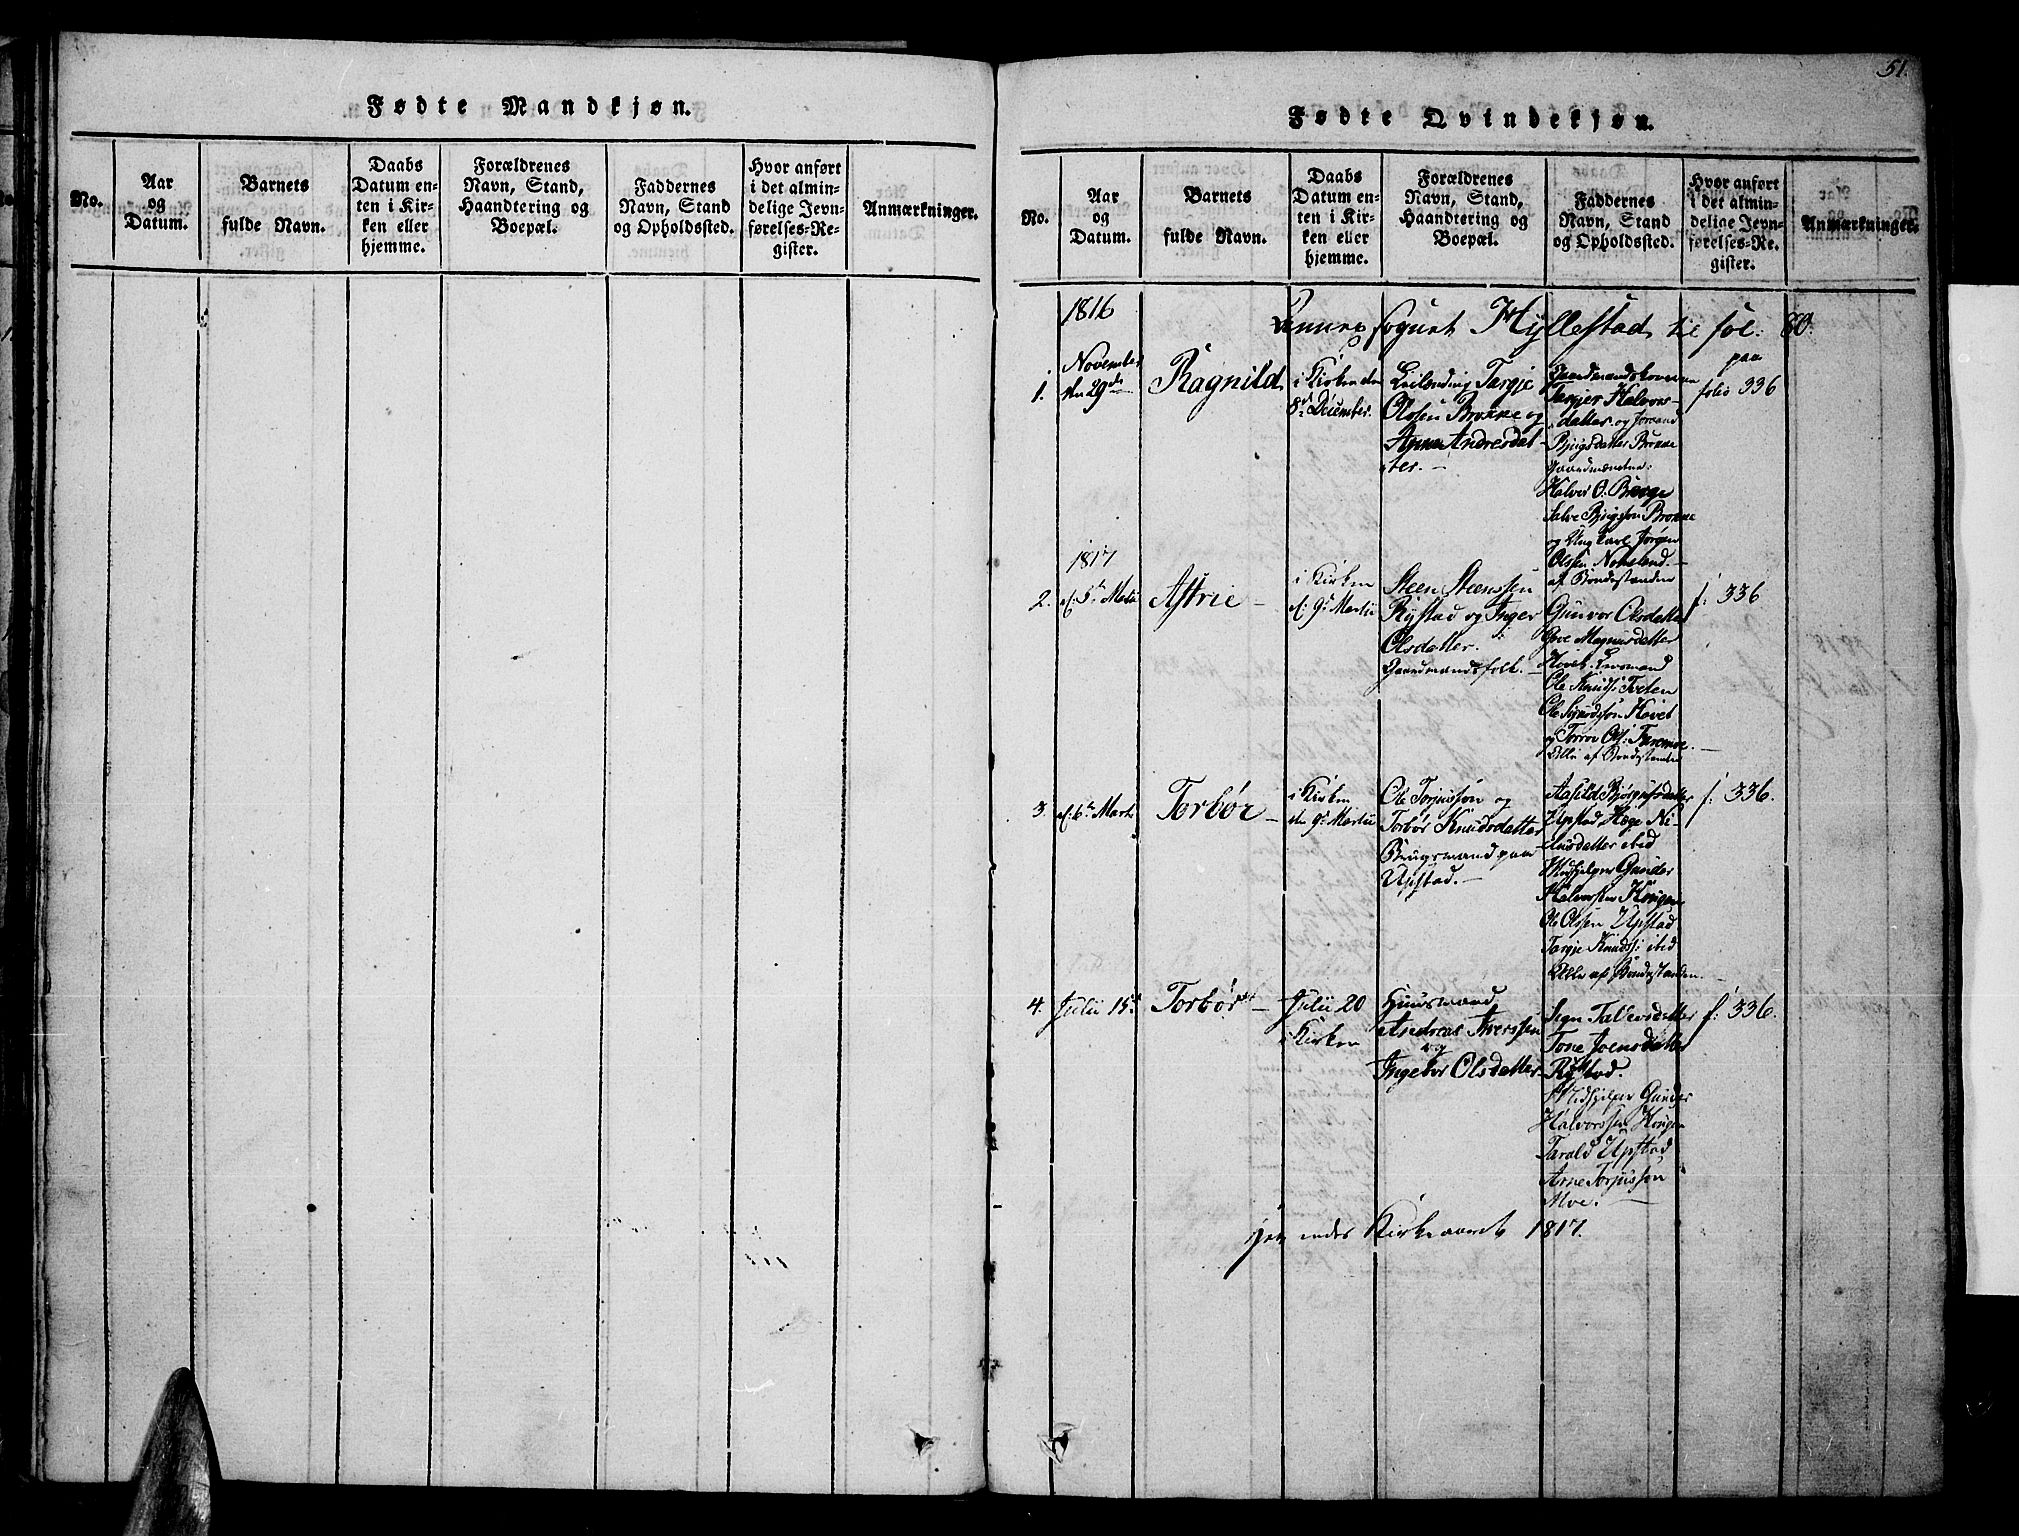 Fødte Mandkjøn.
No.
Aar
og
Datum.
Barnets
fulde Navn.
Daabs
Datum en-
ten i Kir-
ken eller
hjemme.
Forældrenes
Navn, Stand,
Haandtering og
Boepæl.
Faddernes
Navn, Stand
og Opholdssted.
Hvor anført
i det almin-
delige Jevn-
førelses-Re-
gister.
Anmærkninger.
51.
Fødte Qvindekjøn.
No.
Aar
og
Datum.
Barnets
fulde Navn.
Daabs
Datum en-
ten i Kir-
ken eller
hjemme.
Forældrenes
Navn, Stand,
Haandtering og
Boepæl.
Faddernes
Navn, Stand
og Opholdssted.
Hvor anført
i det almin-
delige Jevn-
førelses-Re-
gister.
Anmærkninger.
1816
Hyllestad til fol: 80.
1.
November
den 29de
Ragnild
i Kirken den
8d December.
Leilending Targje
Olssen Brokke og
Anne Andresdat-
ter.
Gaardmandskonerne
Targjer Halvors-
datter og Joraand
Bjugsdatter Brokke
Gaardmændene:
Halvor O. Brogge
Salve Bjugsson Brokke
og Ungkarl Jørgen
Olssen Nomeland.
af Bondestanden
paa
folio 336
1817
2.
d: 5te Martii
Astrie
i Kirken
d: 9d Martii
Steen Steenssen
Rystad og Inger
Olsdatter.
Gaardmandsfolk.
Gunvor Olsdatter
Gove Magnusdatter
Hovet. Levsmand
Ole Knuds: Tveten
Ole Sigurdsson Hovet
og Torror Ols:
Alle af Bondestanden
f: 336
3.
d: 6te Marti
Torbør
i Kirken
den 9d Martii
Ole Torjussøn og
Torbør Knudsdatter
Brugsmand paa
Upstad.
Aasild Bjørgufsdatter
Upstad Hæge Ni-
lusdatter ibid
Medhjelper Gunder
Halvorssen Hougen
Ole Olssen Upstad
Targje Knuds: ibid
Alle af Bondestanden.
f: 336.
4.
Julii 15d
Torbør
Julii 20
i Kirken
Huusmand
Andreas Averssen
og
Ingebor Olsdatter
Sign Tallevsdatter
Tone Joensdatter
Rystad.
Medhjelper Gunder
Halvorssen Hougen
Tarald Upstad
Arne Torjussen
Moe.
f: 336.
Kirkeaaret 1817.